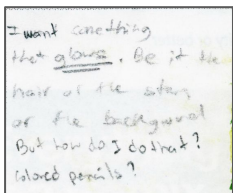 I want something
that glows. Be it the
hair of the siren
or the background
But how do I do that?
Colored pencils?